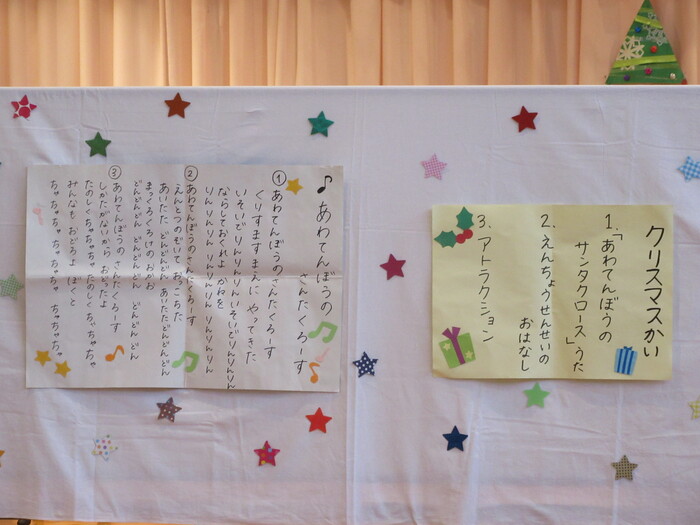 クリスマスかい
1.「あわてんぼうの
サンタクロース」うた
2.えんちょうせんせいの
おはなし
3.アトラクション
♪あわてんぼうの
さんたくろーす
①あわてんぼうのさんたくろーす
くりすますまえに やってきた
いそいでりんりんりん いそいでりんりんりん
ならしておくれよ かねを
りんりんりん りんりんりん りんりんりん
②あわてんぼうのさんたくろーす
えんとつのぞいて おっこちた
あいたた どんどんどん あいたた どんどんどん
まっくろくろけの おかお
どんどんどん どんどんどん どんどんどん
③あわてんぼうの さんたくろーす
しかたがないから おどったよ
たのしくちゃちゃちゃ たのしく ちゃちゃちゃ
みんなも おどろよ ぼくと
ちゃちゃちゃ ちゃちゃちゃ ちゃちゃちゃ